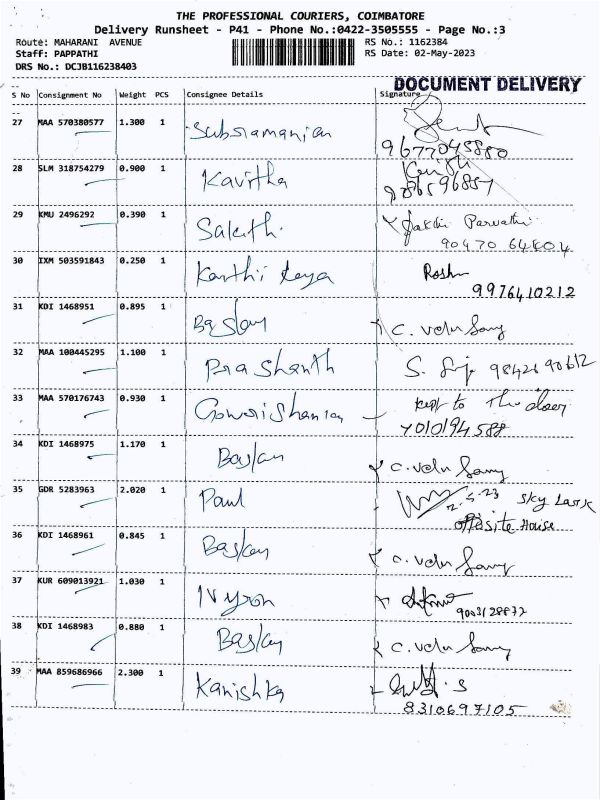 THE PROFESSIONAL COURIERS, COIMBATORE
Delivery Runsheet - P41 - Phone No.:0422-3505555 - Page No.:3
Route: MAHARANI AVENUE RS No.: 1162384
Staff: PAPPATHI RS Date: 02-May-2023
DRS No.: DCJB116238403
DOCUMENT DELIVERY
S No Consignment No Weight PCS Consignee Details Signature
27 MAA 570380577 1.300 1 Subramanian
9677045880
28 SLM 318754279 0.900 1 Kavitha
29 KMU 2496292 0.390 1 Sakthi Parvathi
90470 64804
30 IXM 503591843 0.250 1 Karthi Roshn
9976410212
31 KDI 1468951 0.895 1 Baskay C. Velu Samy
32 MAA 100445295 1.100 1 Prashanth S. 98426 90612
33 MAA 570176743 0.930 1 Gowrishankar kept to The door
7010194588
34 KDI 1468975 1.170 1 Baskay C. Velu Samy
35 GDR 5283963 2.020 1 Paul 2.5.23 Sky Lark
opposite House
36 KDI 1468961 0.845 1 Baskay C. Velu Samy
37 KUR 609013921 1.030 1
9003128877
38 KDI 1468983 0.880 1 Baskay C. Velu Samy
39 MAA 859686966 2.300 1 Kanishka S
8310697105